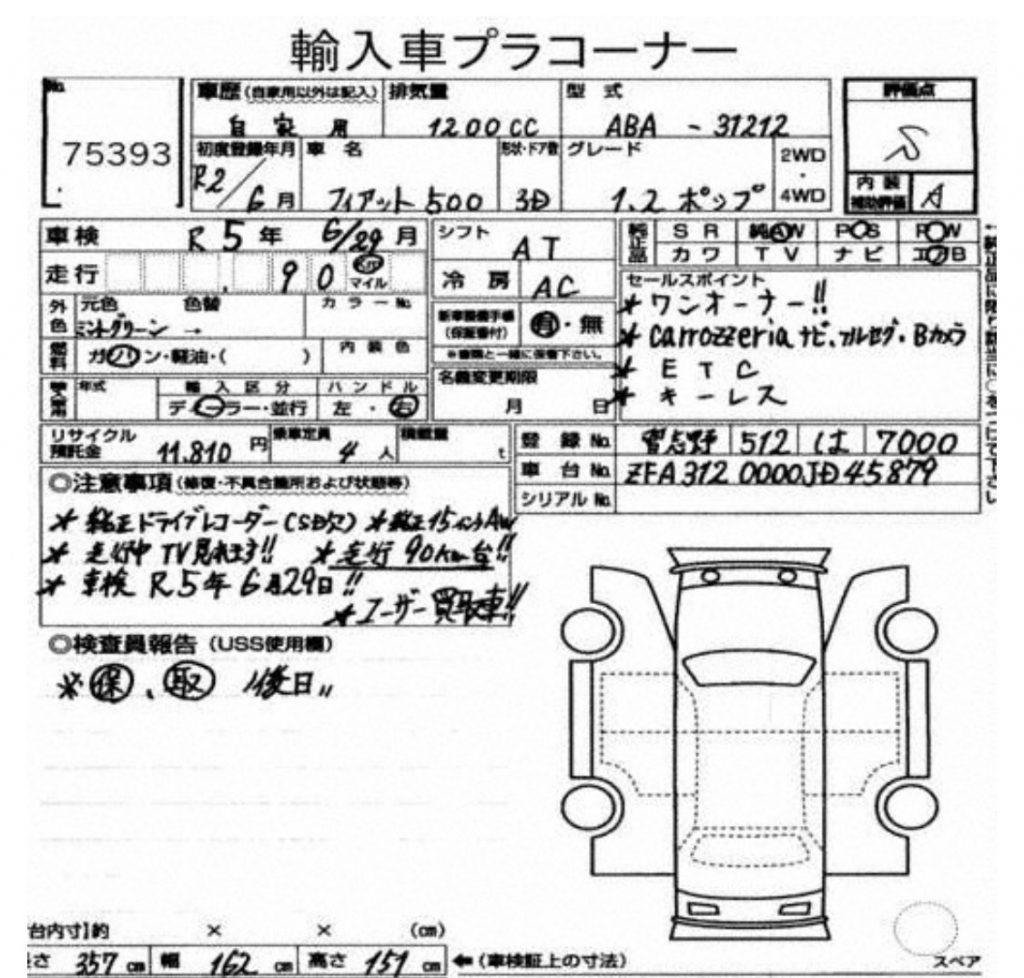 輸入車プラコーナー
No. 75393
車歴(自家用以外は記入) 自家用
排気量 1200cc
型式 ABA - 31212
評価点 S
初度登録年月 R2/6月
車名 フィアット500
形状・ドア数 3D
グレード 1.2 ポップ
2WD・4WD
内装補助評価 A
車検 R5年 6/29月
シフト AT
純正品 SR 純AW PS PW
カワ TV ナビ エアB
走行 90 Km マイル
冷房 AC
セールスポイント
* ワンオーナー!!
* carrozzeria ナビ、フルセグ・Bカメラ
* ETC
* キーレス
外色 元色 ミントグリーン → 色替 カラーNo.
新車整備手帳(保証書付) 有・無
※書類と一緒に保管下さい。
燃料 ガソリン・軽油・( ) 内装色
名義変更期限 月 日
年式 輸入区分 ディーラー・並行 ハンドル 左・右
リサイクル預託金 11,810円
乗車定員 4人
積載量 t
登録No. 習志野 512 は 7000
車台No. ZFA3120000JD45879
シリアルNo.
◎注意事項(修復・不具合箇所および状態等)
* 純正ドライブレコーダー(SD欠) * 純正15インチAW
* 走行中TV見れます!! * 走行90Km台!!
* 車検R5年6月29日!!
* ユーザー買取車!!
◎検査員報告(USS使用欄)
※保、取 "後日"
台内寸】約 × × (cm)
長さ 357cm 幅 162cm 高さ 151cm ←(車検証上の寸法)
スペア